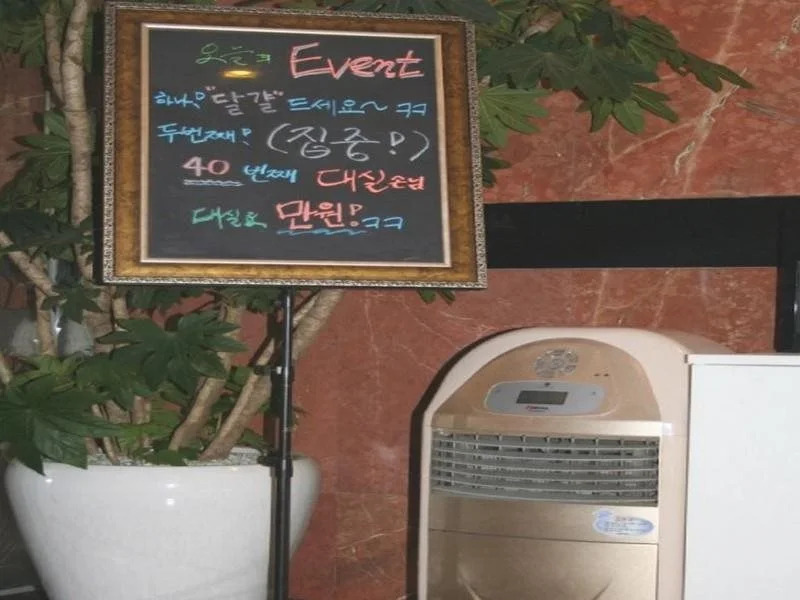 오늘의 Event
하나! "달걀" 드세요~ ㅋㅋ
두번째! (집중!)
40 번째 대실손님
대실료 만원! ㅋㅋ